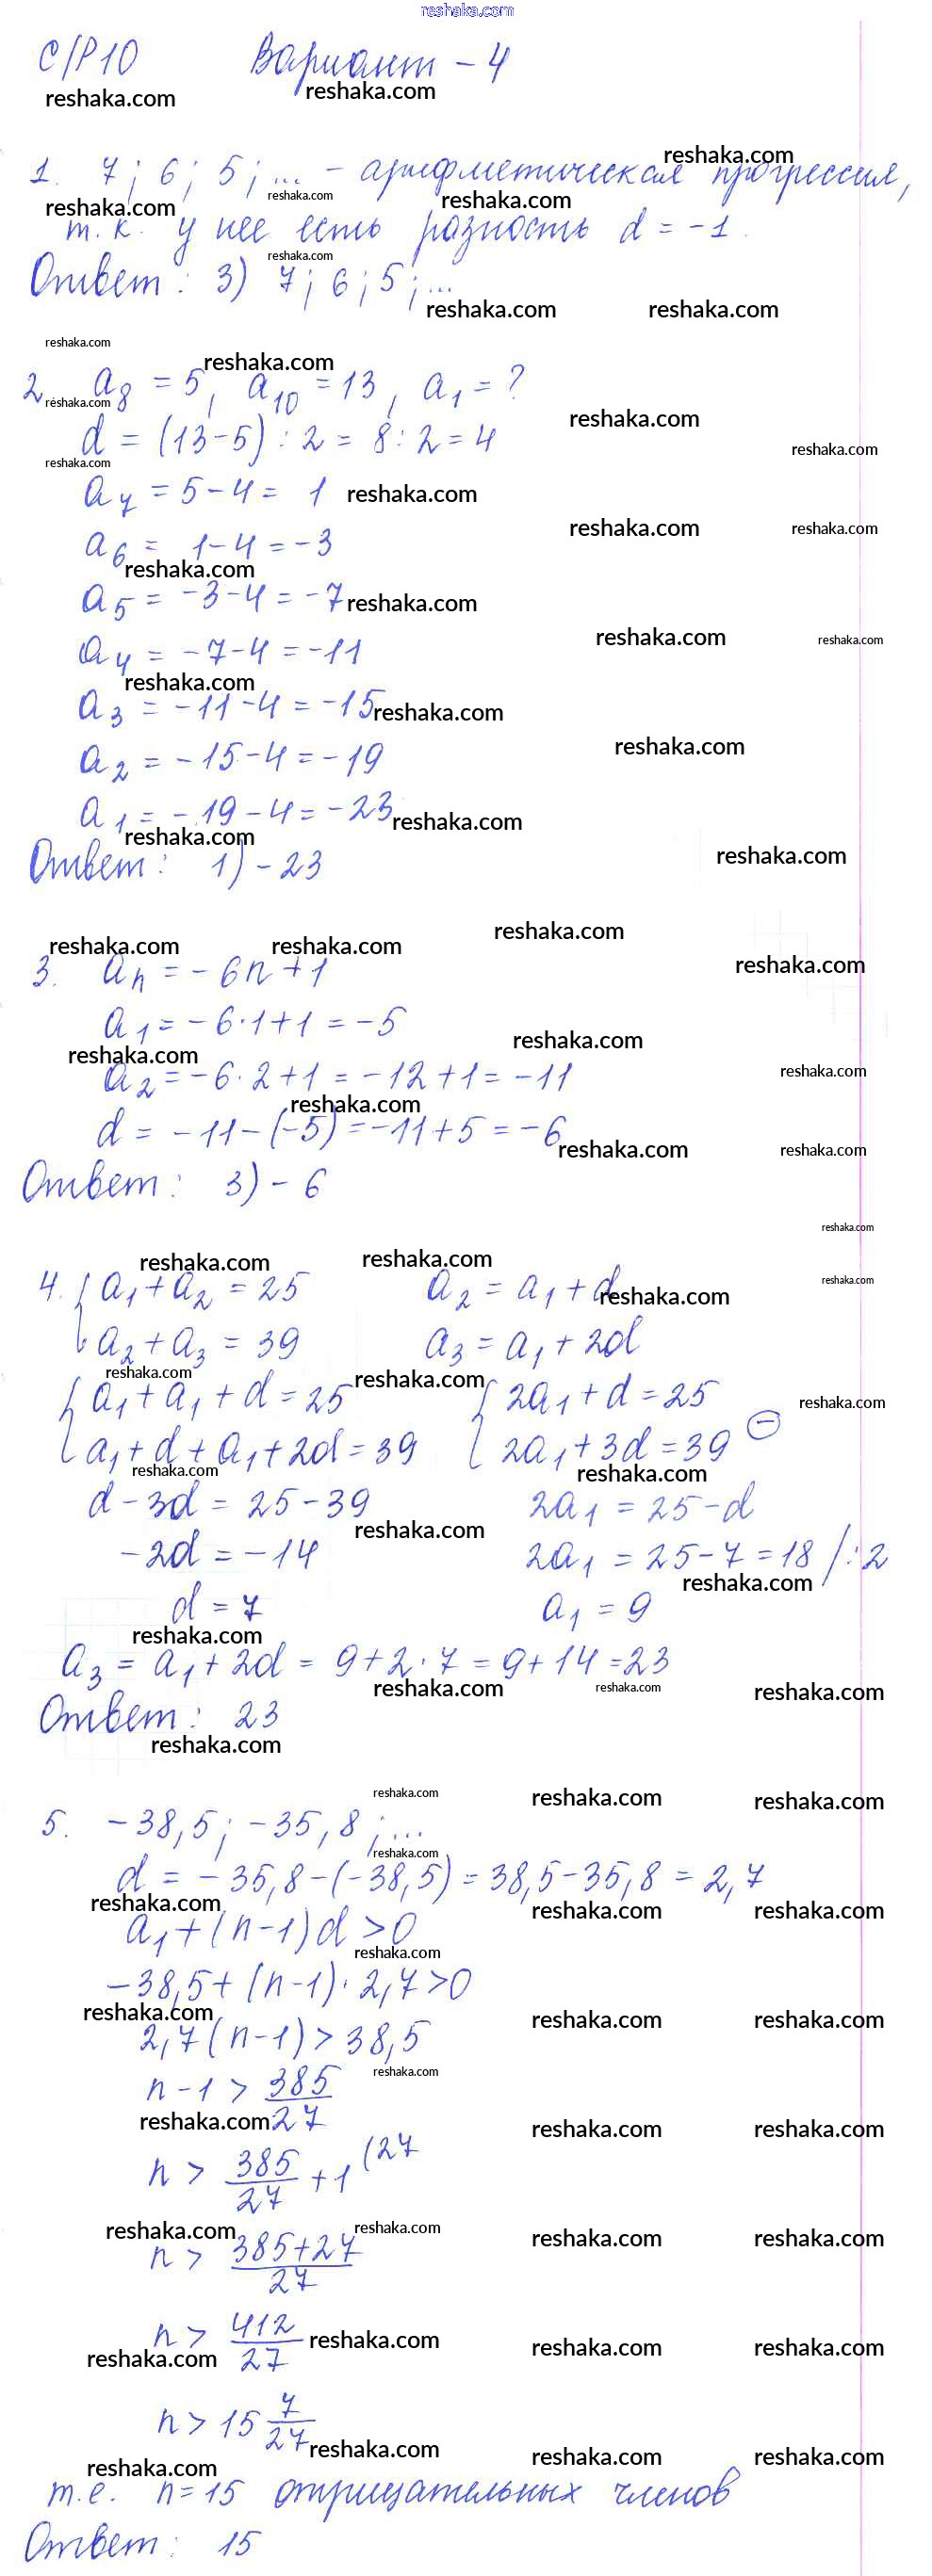 reshaka.com
С/Р10 Вариант - 4
1. 7; 6; 5; ... - арифметическая прогрессия,
т.к. у нее есть разность d = -1.
Ответ: 3) 7; 6; 5; ...
2. a₈ = 5, a₁₀ = 13, a₁ = ?
d = (13-5) : 2 = 8 : 2 = 4
a₇ = 5 - 4 = 1
a₆ = 1 - 4 = -3
a₅ = -3 - 4 = -7
a₄ = -7 - 4 = -11
a₃ = -11 - 4 = -15
a₂ = -15 - 4 = -19
a₁ = -19 - 4 = -23
Ответ: 1) -23
3. aₙ = -6n + 1
a₁ = -6·1+1 = -5
a₂ = -6·2+1 = -12+1 = -11
d = -11-(-5) = -11+5 = -6
Ответ: 3) -6
4. { a₁ + a₂ = 25 a₂ = a₁ + d
a₂ + a₃ = 39 a₃ = a₁ + 2d
{ a₁ + a₁ + d = 25 { 2a₁ + d = 25
a₁ + d + a₁ + 2d = 39 2a₁ + 3d = 39 ⊖
d - 3d = 25 - 39 2a₁ = 25 - d
-2d = -14 2a₁ = 25 - 7 = 18 / :2
d = 7 a₁ = 9
a₃ = a₁ + 2d = 9 + 2·7 = 9 + 14 = 23
Ответ: 23
5. -38,5; -35,8; ...
d = -35,8-(-38,5) = 38,5-35,8 = 2,7
a₁ + (n-1)d > 0
-38,5 + (n-1)·2,7 > 0
2,7(n-1) > 38,5
n-1 > 385/27
n > 385/27 + 1 (27
n > 385+27/27
n > 412/27
n > 15 7/27
т.е. n = 15 отрицательных членов
Ответ: 15